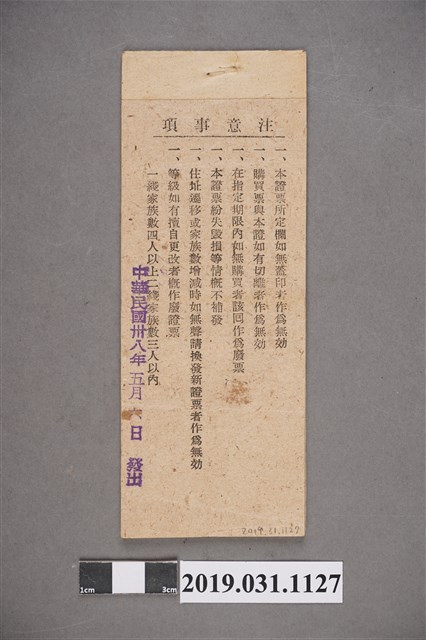 注意事項
一、本證票所定欄如無蓋印者作為無効
一、購買票與本證如有切離者作為無効
一、在指定期限內如無購買者該回作為廢票
一、本證票紛失毀損等情概不補發
一、住址遷移或家族數增減時如無聲請換發新證票者作為無効
一、等級如有擅自更改者概作廢證票
一綫家族數四人以上二綫家族數三人以內
中華民國卅八年五月六日發出
2019.31.1127
1cm
3cm
2019.031.1127